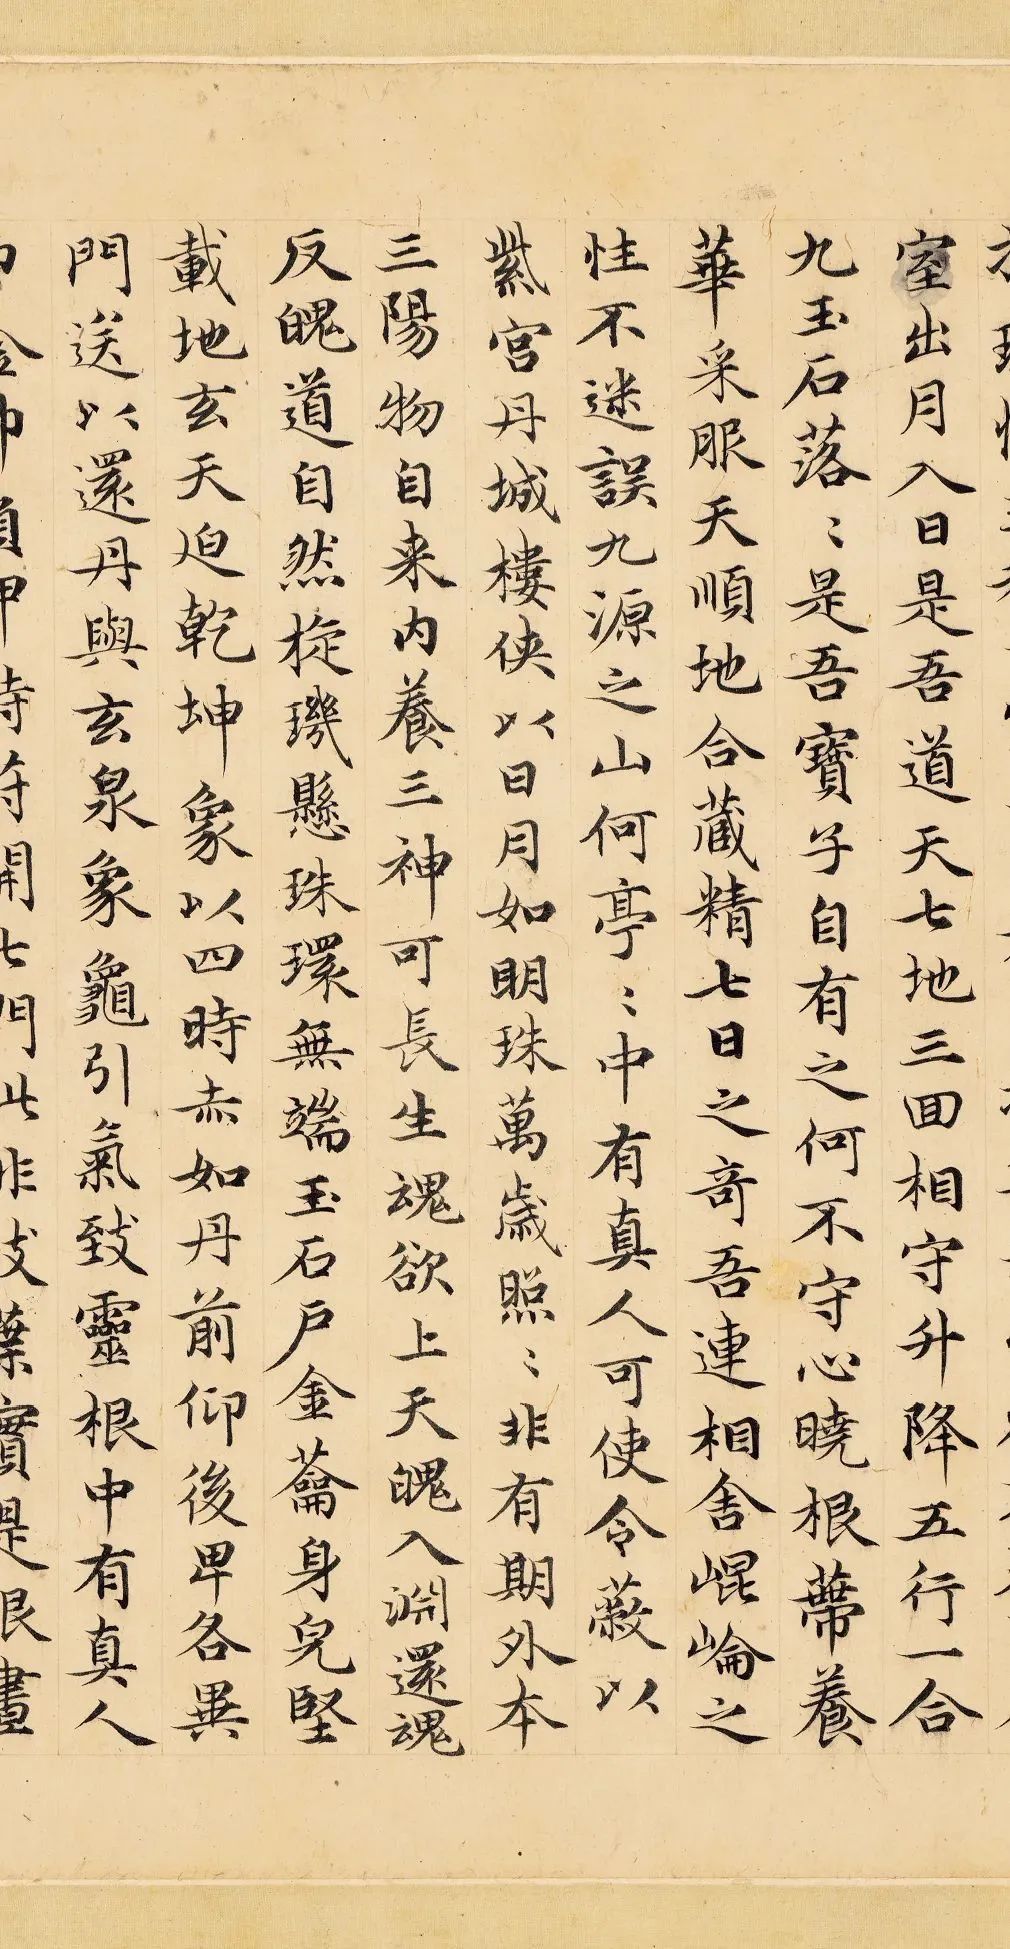 室出月入日是吾道天七地三回相守升降五行一合
九玉石落〻是吾寶子自有之何不守心曉根蔕養
華采服天順地合藏精七日之奇吾連相舍崐崘之
性不迷誤九源之山何亭〻中有真人可使令蔽以
紫宮丹城樓俠以日月如明珠萬歲照〻非有期外本
三陽物自来内養三神可長生魂欲上天魄入淵還魂
反魄道自然㨁璣懸珠環無端玉石戶金蘥身皃堅
載地玄天迫乾坤象以四時赤如丹前仰後卑各異
門送以還丹與玄泉象龜引氣致靈根中有真人
巾金巾負甲持符開七門此非枝葉實是根晝